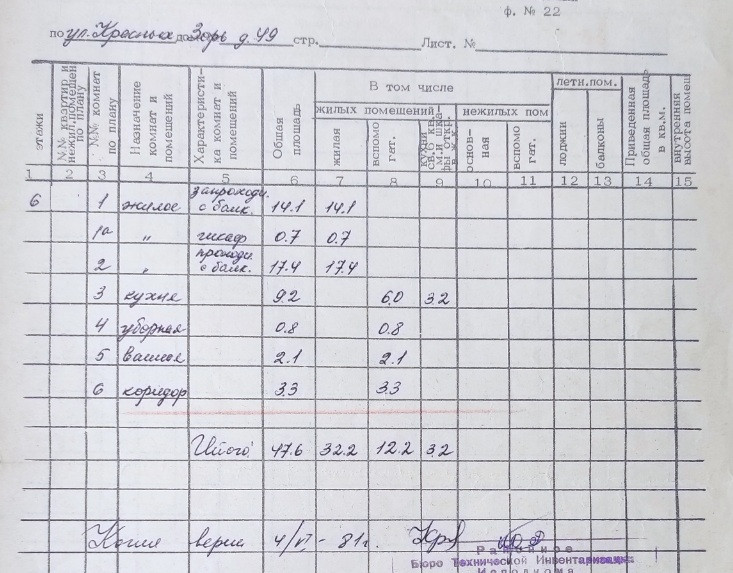 ф. № 22
по ул. Красных до Зорь д. 49 стр. Лист. №
этажи
№№ квартир и нежил.помещен по плану
№№ комнат по плану
Назначение комнат и помещений
Характеристи-ка комнат и помещений
Общая площадь
В том числе
жилых помещений
нежилых пом
летн.пом.
жилая
вспомогат.
основ-ная
вспомогат.
лоджии
балконы
Приведенная общая площадь в кв.м.
внутренняя высота помещ
1 2 3 4 5 6 7 8 9 10 11 12 13 14 15
6 1 жилое запроходн. с балк. 14.1 14.1
1а " шкаф 0.7 0.7
2 " проходн. с балк. 17.4 17.4
3 кухня 9.2 6.0 3.2
4 уборная 0.8 0.8
5 ванная 2.1 2.1
6 коридор 3.3 3.3
Итого: 47.6 32.2 12.2 3.2
Копия верна 4/VI - 81г.
Районное
Бюро Технической Инвентаризации
Исполкома